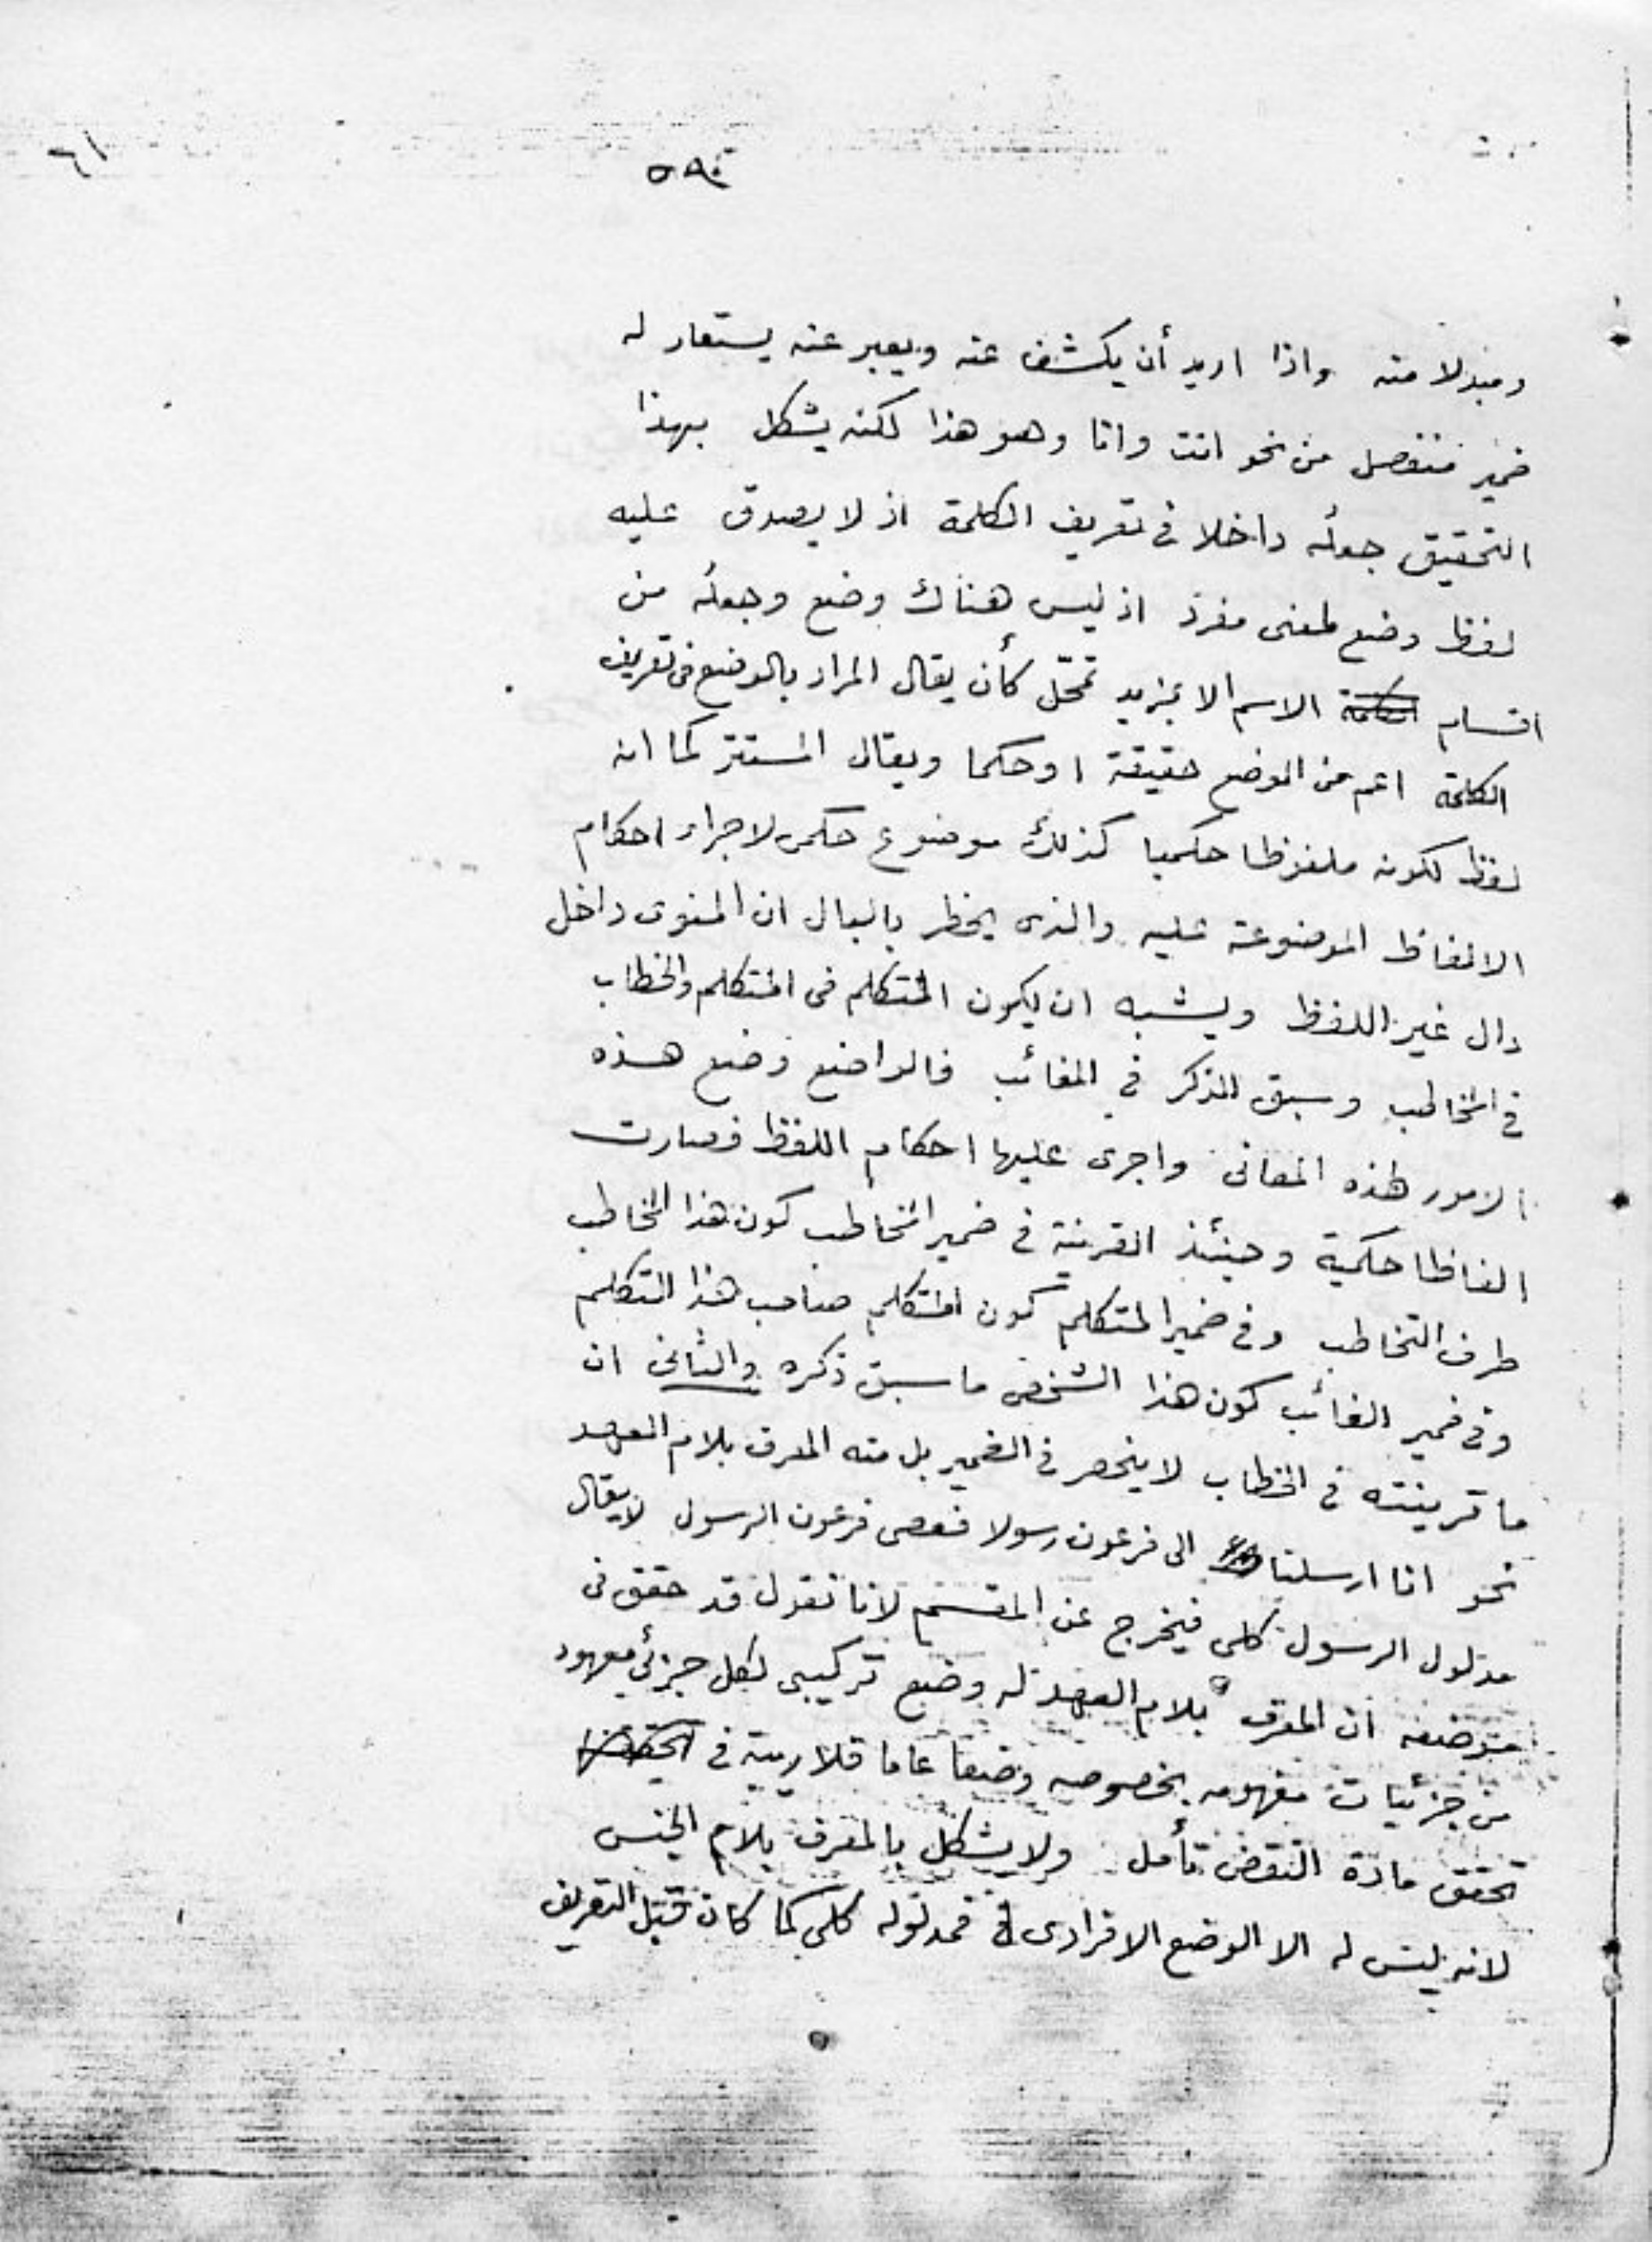 ٦١
ومبدلا منه واذا اريد أن يكشف عنه ويعبر عنه يستعار له
ضمير منفصل من نحو انت وانا وهو هذا لكنه يشكل بهذا
التحقيق جعله داخلا في تعريف الكلمة اذ لا يصدق عليه
لفظ وضع لمعنى مفرد اذ ليس هناك وضع وجعله من
اقسام الاسم الا بمزيد تمحّل كأن يقال المراد بالوضع في تعريف
الكلمة اعم من الوضع حقيقة او حكما ويقال المستتر كما انه
لفظ لكونه ملفوظا حكميا كذلك موضوع حكمي لاجراء احكام
الالفاظ الموضوعة عليه والذى يخطر بالبال ان المنوى داخل
دال غير اللفظ ويشبه ان يكون المتكلم فى المتكلم والخطاب
في المخاطب وسبق الذكر في الغائب فالواضع وضع هذه
الامور لهذه المعانى واجرى عليها احكام اللفظ فصارت
الفاظا حكمية وحينئذ القرينة في ضمير المخاطب كون هذا المخاطب
طرف التخاطب وفي ضمير المتكلم كون المتكلم صاحب هذا التكلم
وفي ضمير الغائب كون هذا الشخص ما سبق ذكره والثانى ان
ما قرينته في الخطاب لا ينحصر في الضمير بل منه المعرف بلام العهد
نحو انا ارسلنا الى فرعون رسولا فعصى فرعون الرسول لا يقال
مدلول الرسول كلى فيخرج عن المقسم لانا نقول قد حقق فى
موضعه ان المعرف بلام العهد له وضع تركيبى لكل جزئي معهود
من جزئيات مفهومه بخصوصه وضعا عاما فلا ريبة في
تحقق مادة النقض تأمل ولا يشكل بالمعرف بلام الجنس
لانه ليس له الا الوضع الافرادى فمدلوله كلي كما كان قبل التعريف